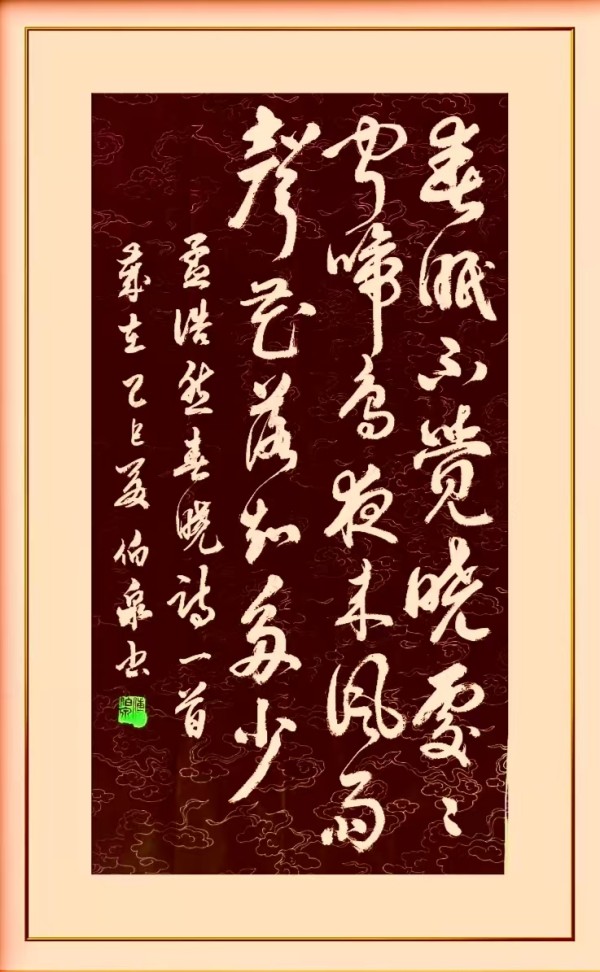 春眠不覺曉處々
闻啼鸟夜来风雨
聲花落知多少
孟浩然春晓诗一首
歲在乙巳夏伯泉书